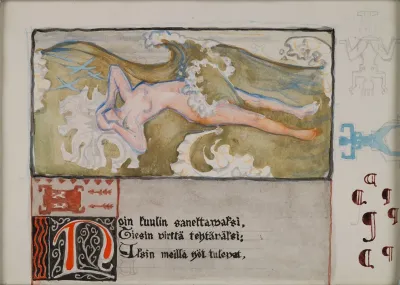 Noin kuulin saneltawaksi,
Tiesin wirttä tehtäwäksi;
Yksin meillä yöt tulewat,